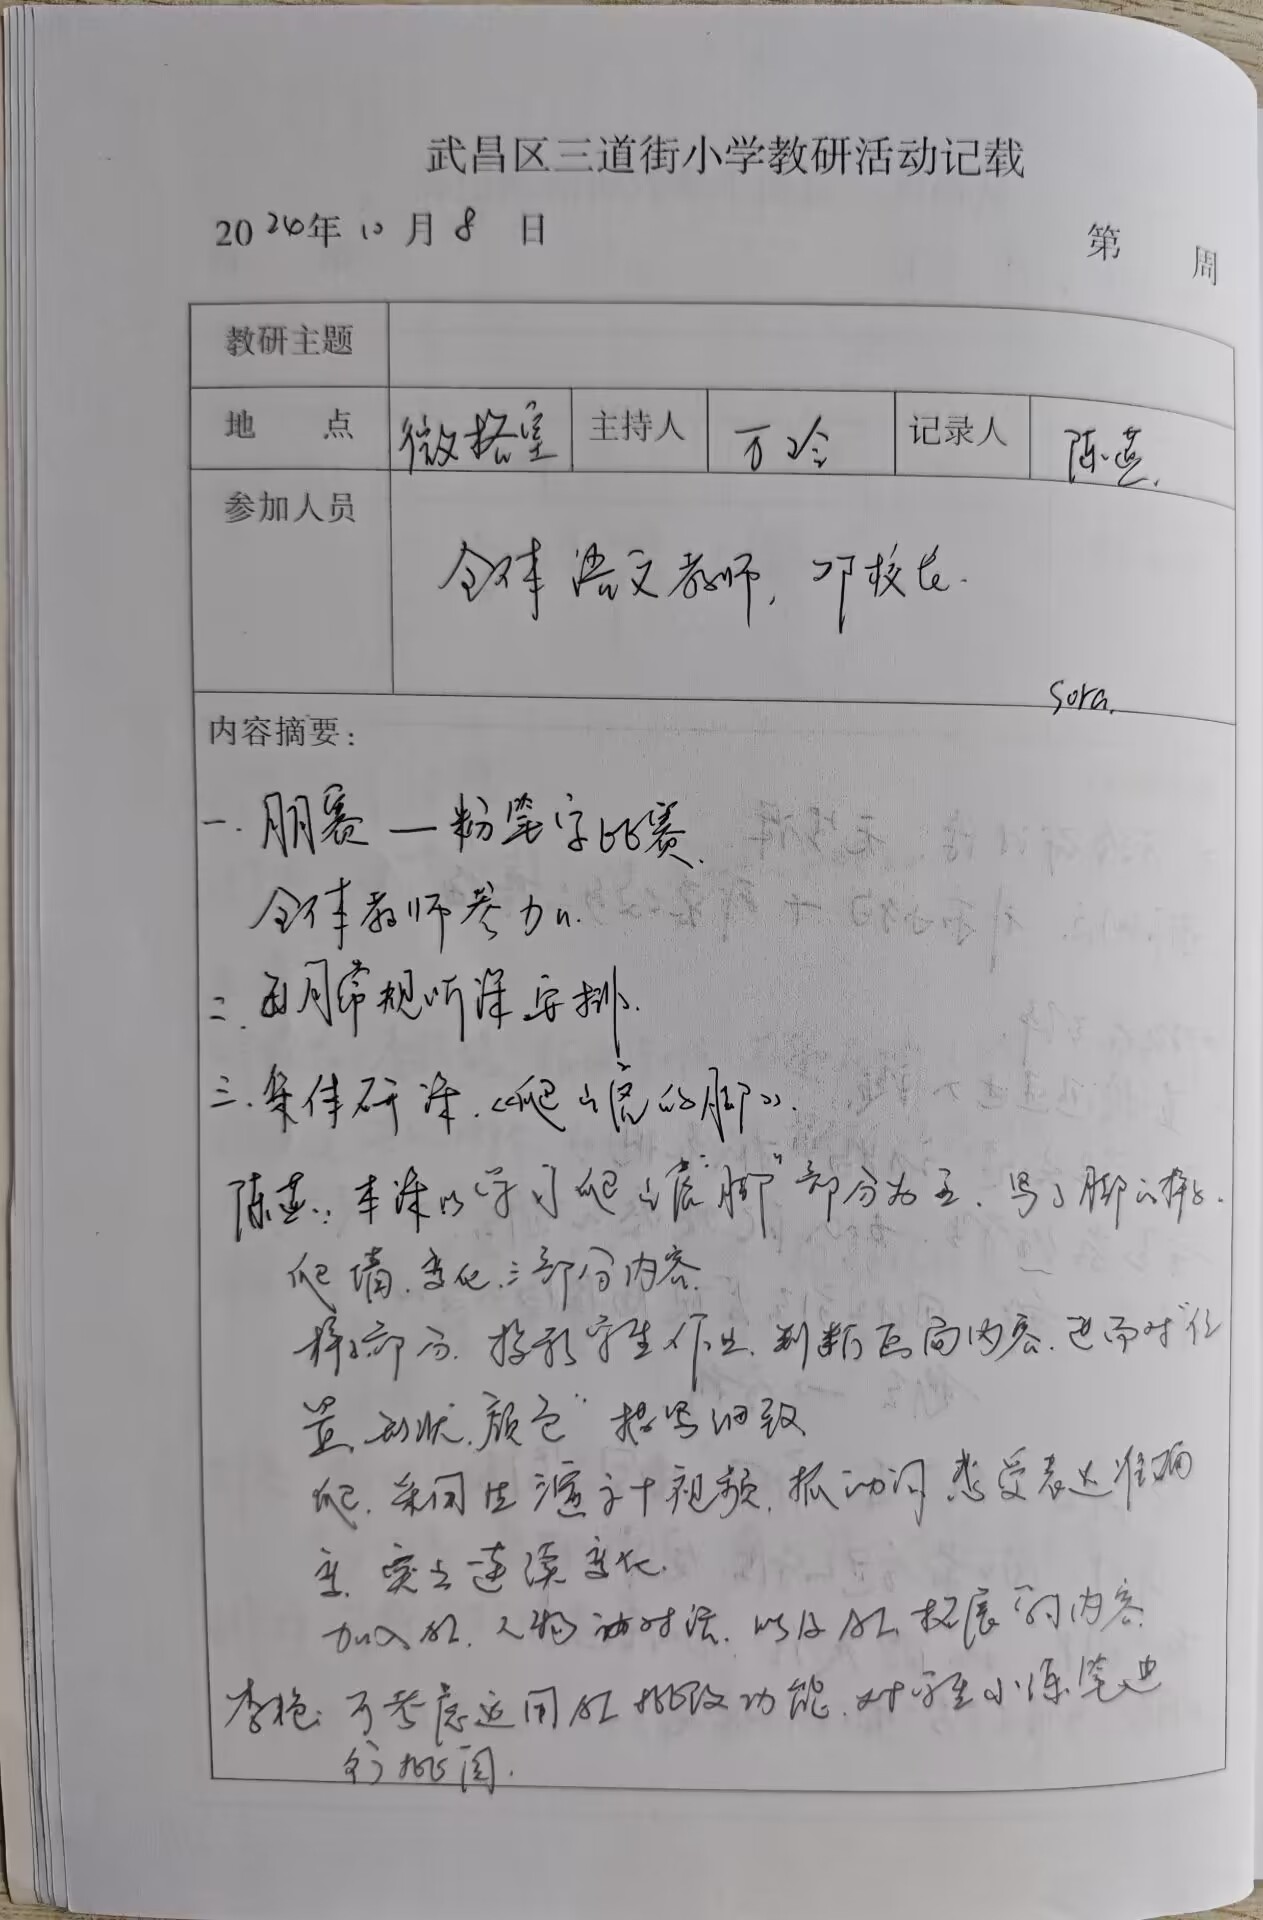 武昌区三道街小学教研活动记载
2024年10月8日 第 周
教研主题
地 点 微格室 主持人 万玲 记录人 陈燕.
参加人员
全体语文教师, 邓校长.
Sora.
内容摘要:
一. 朋赛 — 粉笔字比赛.
全体教师参加.
二. 月常规听课安排.
三. 集体研课.《爬山虎的脚》.
陈燕: 本课以学习爬山虎"脚"部分为主. 写了脚的样子.
爬墙. 变化. 三部分内容.
样子部分. 投影学生作业. 判断画的内容. 进而对"位
置. 形状. 颜色" 描写细致
爬. 采用生演示+视频. 抓动词 感受表达准确
变. 突出连续变化.
加入AI. 人物 对话. 以及AI 拓展的内容.
李艳: 可考虑运用AI批改功能. 对学生小练笔进
行批阅.